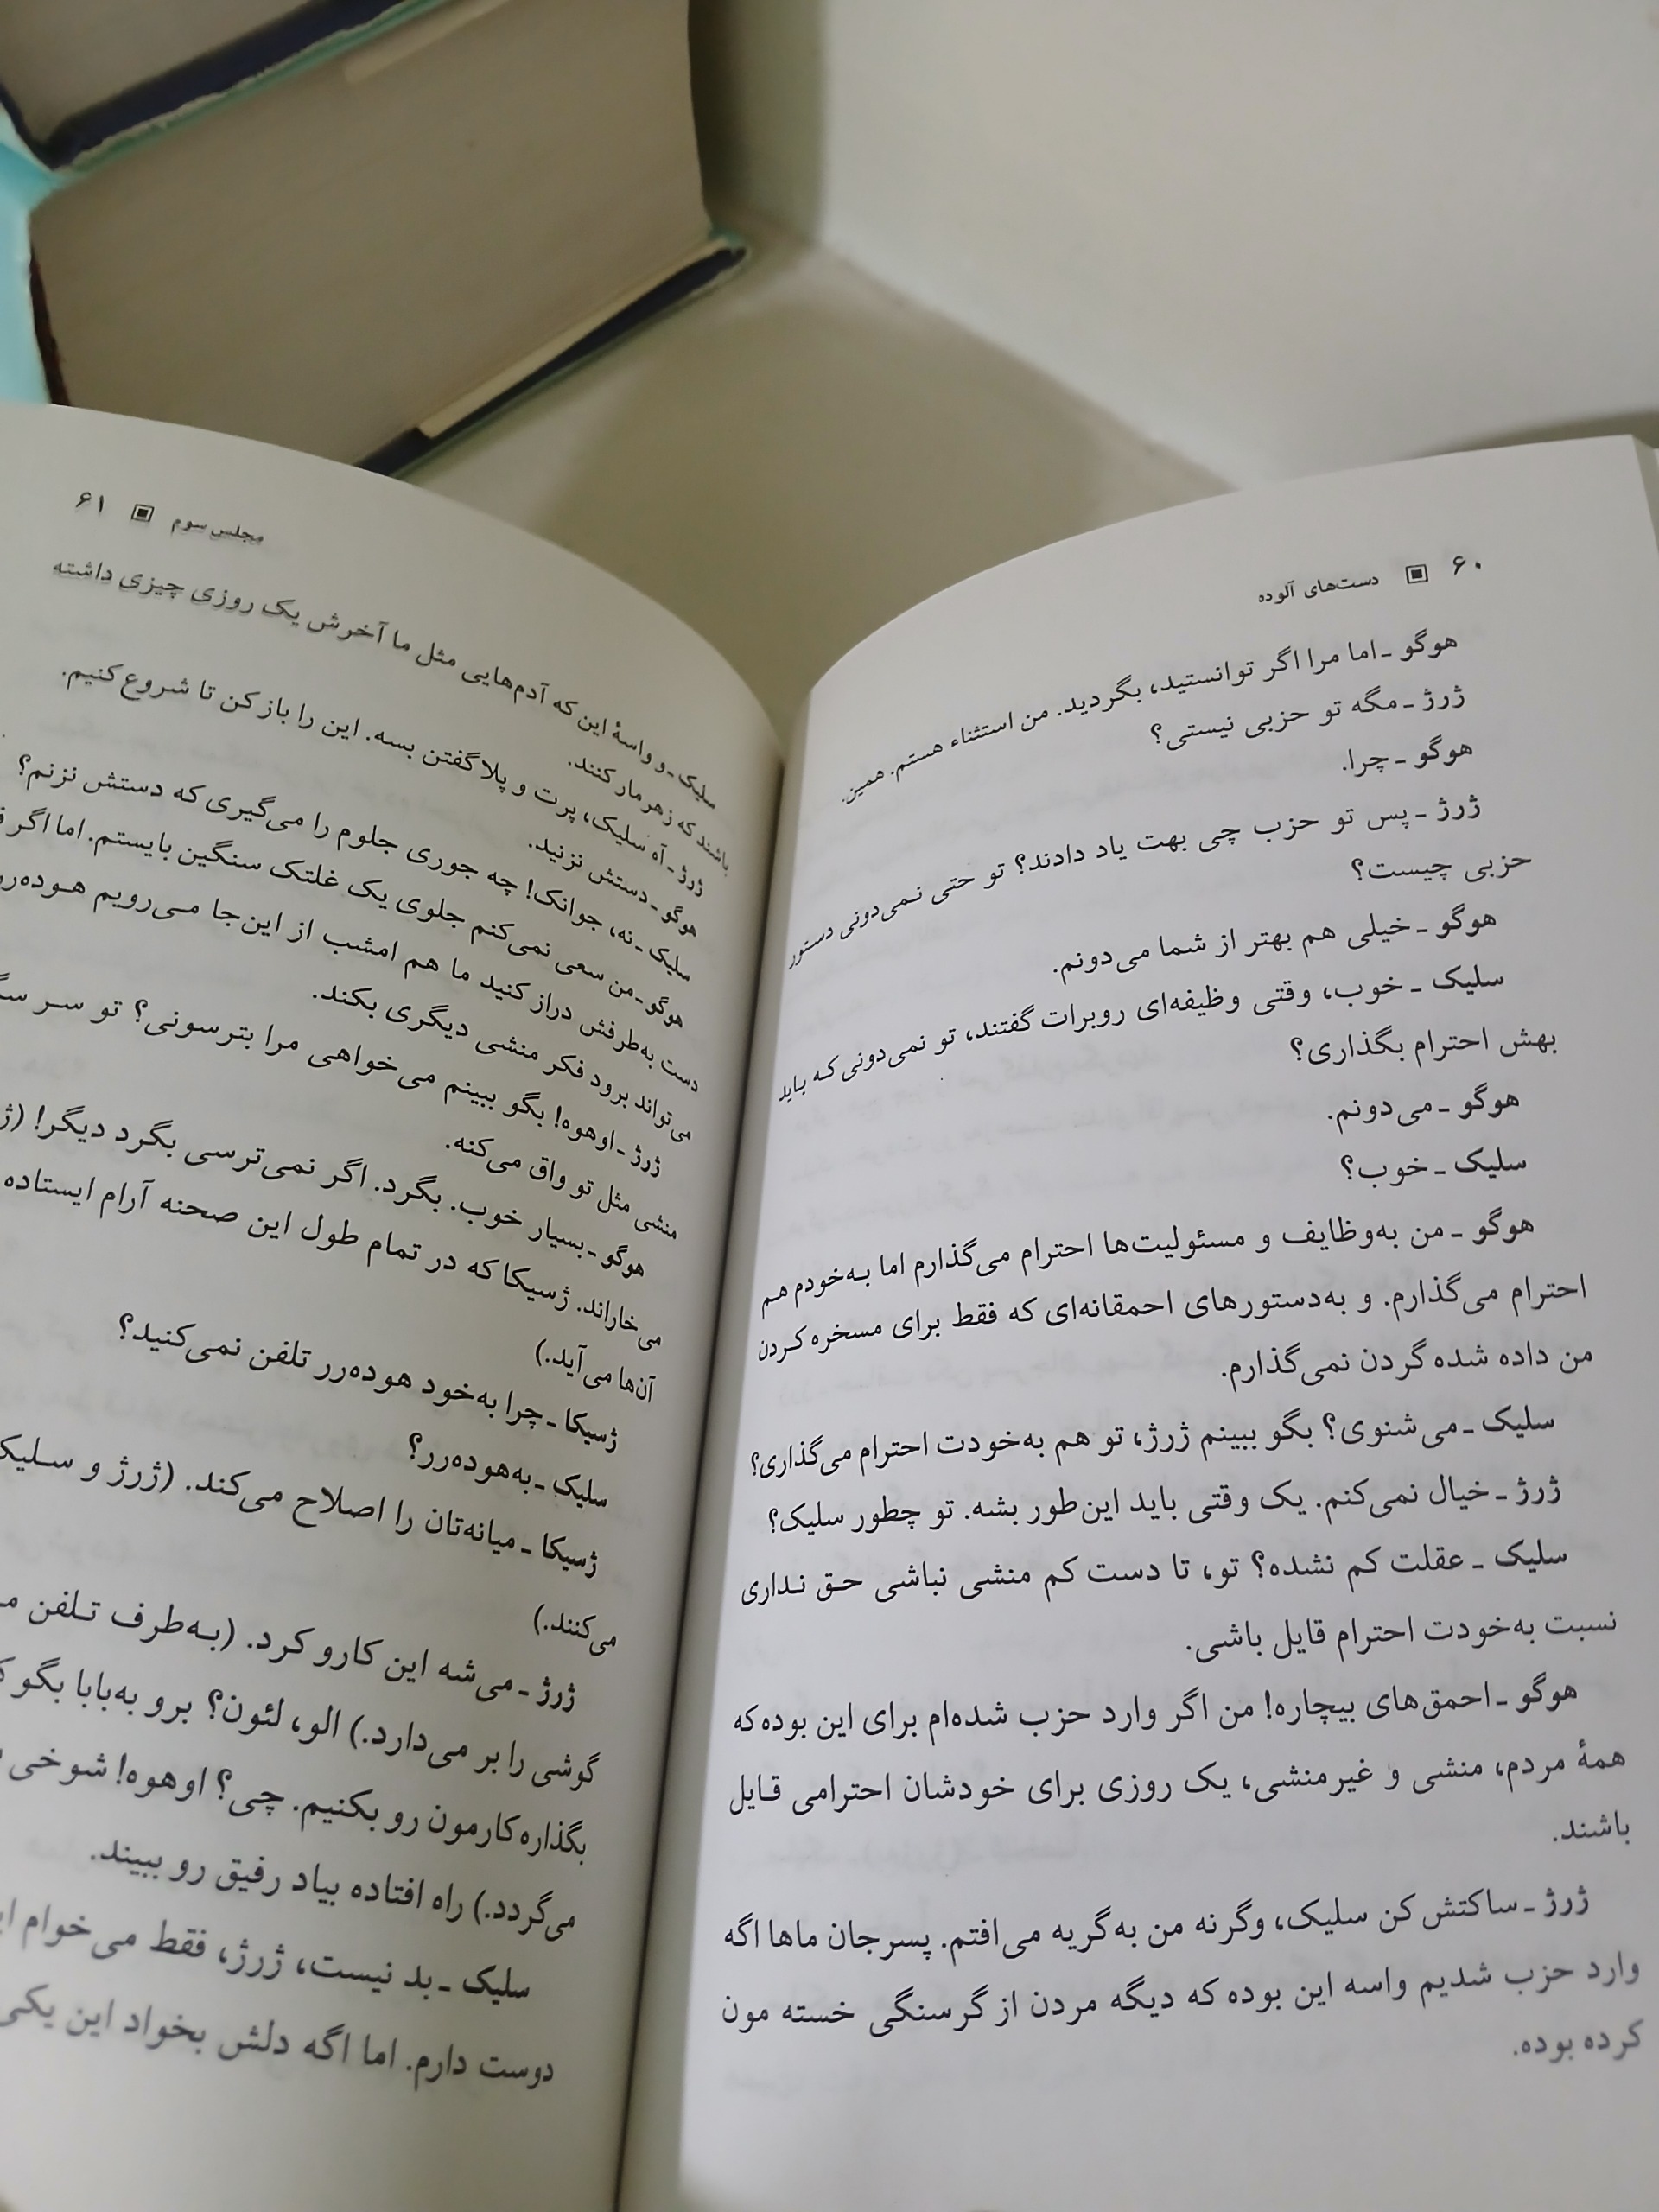 ۶۰ دست‌های آلوده
هوگو ـ اما مرا اگر توانستید، بگردید. من استثناء هستم. همین.
ژرژ ـ مگه تو حزبی نیستی؟
هوگو ـ چرا.
ژرژ ـ پس تو حزب چی بهت یاد دادند؟ تو حتی نمی‌دونی دستور
حزبی چیست؟
هوگو ـ خیلی هم بهتر از شما می‌دونم.
سلیک ـ خوب، وقتی وظیفه‌ای روبرات گفتند، تو نمی‌دونی که باید
بهش احترام بگذاری؟
هوگو ـ می‌دونم.
سلیک ـ خوب؟
هوگو ـ من به‌وظایف و مسئولیت‌ها احترام می‌گذارم اما به‌خودم هم
احترام می‌گذارم. و به‌دستورهای احمقانه‌ای که فقط برای مسخره کردن
من داده شده گردن نمی‌گذارم.
سلیک ـ می‌شنوی؟ بگو ببینم ژرژ، تو هم به‌خودت احترام می‌گذاری؟
ژرژ ـ خیال نمی‌کنم. یک وقتی باید این‌طور بشه. تو چطور سلیک؟
سلیک ـ عقلت کم نشده؟ تو، تا دست کم منشی نباشی حق نداری
نسبت به‌خودت احترام قایل باشی.
هوگو ـ احمق‌های بیچاره! من اگر وارد حزب شده‌ام برای این بوده که
همهٔ مردم، منشی و غیرمنشی، یک روزی برای خودشان احترامی قایل
باشند.
ژرژ ـ ساکتش کن سلیک، وگرنه من به‌گریه می‌افتم. پسرجان ماها اگه
وارد حزب شدیم واسه این بوده که دیگه مردن از گرسنگی خسته مون
کرده بوده.
مجلس سوم ۶۱
سلیک ـ و واسهٔ این که آدم‌هایی مثل ما آخرش یک روزی چیزی داشته
باشند که زهرمار کنند.
ژرژ ـ آه سلیک، پرت و پلا گفتن بسه. این را باز کن تا شروع کنیم.
هوگو ـ دستش نزنید.
سلیک ـ نه، جوانک! چه جوری جلوم را می‌گیری که دستش نزنم؟
هوگو ـ من سعی نمی‌کنم جلوی یک غلتک سنگین بایستم. اما اگر
دست به‌طرفش دراز کنید ما هم امشب از این‌جا می‌رویم
می‌تواند برود فکر منشی دیگری بکند.
ژرژ ـ اوهوه! بگو ببینم می‌خواهی مرا بترسونی؟ تو سر
منشی مثل تو واق می‌کنه.
هوگو ـ بسیار خوب. بگرد. اگر نمی‌ترسی بگرد دیگر!
می‌خاراند. ژسیکا که در تمام طول این صحنه آرام ایستاده
آن‌ها می‌آید.)
ژسیکا ـ چرا به‌خود هوده‌رر تلفن نمی‌کنید؟
سلیک ـ به‌هوده‌رر؟
ژسیکا ـ میانه‌تان را اصلاح می‌کند. (ژرژ و سلیک
می‌کنند.)
ژرژ ـ می‌شه این کارو کرد. (به‌طرف تلفن
گوشی را بر می‌دارد.) الو، لئون؟ برو به‌بابا بگو
بگذاره کارمون رو بکنیم. چی؟ اوهوه! شوخی
می‌گردد.) راه افتاده بیاد رفیق رو ببیند.
سلیک ـ بد نیست، ژرژ، فقط می‌خوام
دوست دارم. اما اگه دلش بخواد این یکی